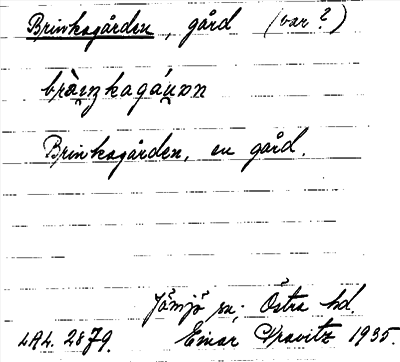 Brinkagården, gård (var?)
brinkagården
Brinkagården, en gård.
Jämjö sn; Östra hd.
LAL. 2879. Einar Kravitz 1935.